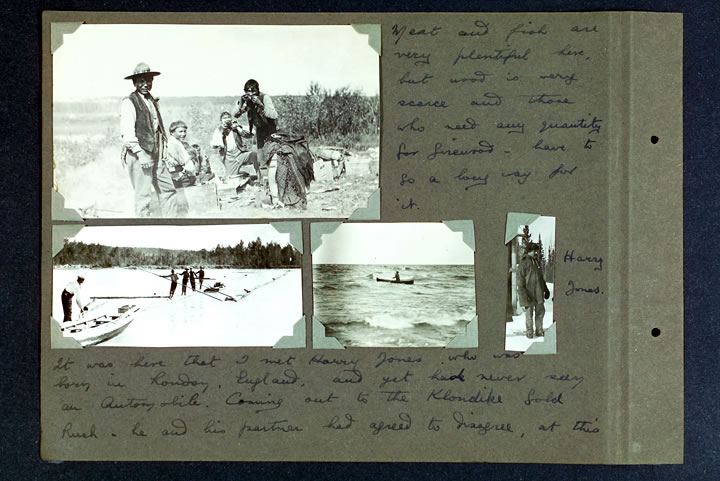 Meat and fish are
very plentiful here,
but wood is very
scarce and those
who need any quantity
for firewood - have to
go a long way for
it.
Harry
Jones.
It was here that I met Harry Jones who was
born in London, England, and yet had never seen
an Automobile. Coming out to the Klondike Gold
Rush - he and his partner had agreed to disagree, at this